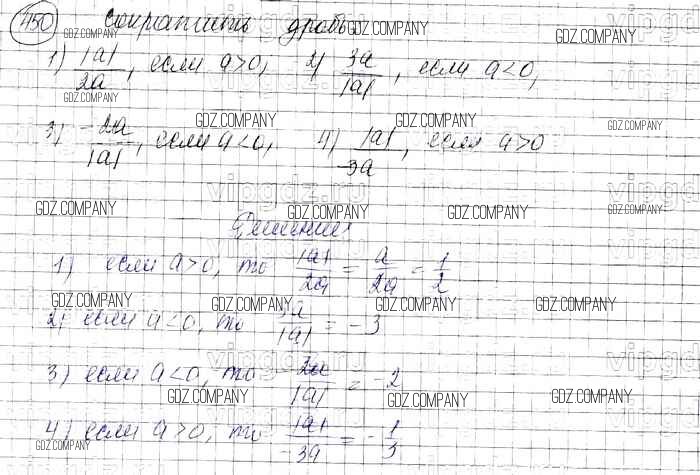 450 Сократить дробь
GDZ.COMPANY GDZ.COMPANY GDZ.COMPANY
1) |a|/2a, если a>0, 2) 3a/|a|, если a<0,
GDZ.COMPANY
GDZ.COMPANY GDZ.COMPANY GDZ.COMPANY
3) -2a/|a|, если a<0, 4) |a|/-3a, если a>0
vipgdz.ru
GDZ.COMPANY GDZ.COMPANY GDZ.COMPANY GDZ.COMPANY
Решение
1) если a>0, то |a|/2a = a/2a = 1/2
GDZ.COMPANY GDZ.COMPANY GDZ.COMPANY GDZ.COMPANY
2) если a<0, то 3a/|a| = -3
vipgdz.ru
3) если a<0, то 2a/|a| = -2
GDZ.COMPANY GDZ.COMPANY GDZ.COMPANY
4) если a>0, то |a|/-3a = -1/3
GDZ.COMPANY